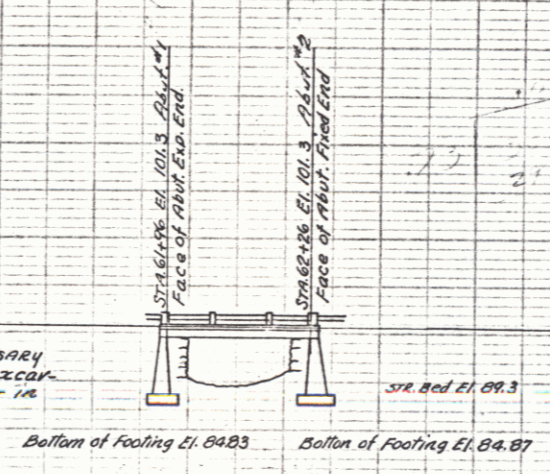 STA.61+96 El. 101.3 Abut. #1
Face of Abut. Exp. End.
STA.62+26 El. 101.3 Abut. #2
Face of Abut. Fixed End
SARY
xcav-
in
STR. Bed El. 89.3
Bottom of Footing El. 84.83
Bottom of Footing El. 84.87